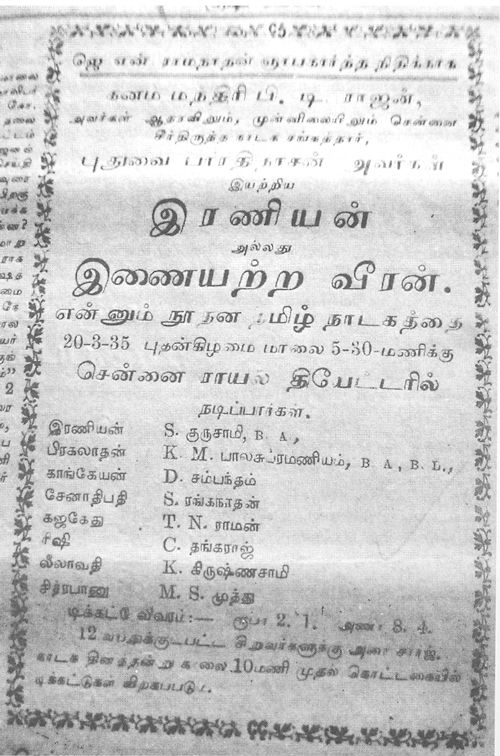 ஜெ என் ராமநாதன் ஞாபகார்த்த நிதிக்காக
கனம் மந்திரி பி. டி. ராஜன்,
அவர்கள் ஆதரவிலும், முன்னிலையிலும் சென்னை
சீர்திருத்த நாடக சங்கத்தார்,
புதுவை பாரதிதாசன் அவர்கள்
இயற்றிய
இரணியன்
அல்லது
இணையற்ற வீரன்.
என்னும் நூதன தமிழ் நாடகத்தை
20-3-35 புதன்கிழமை மாலை 5-30-மணிக்கு
சென்னை ராயல் தியேட்டரில்
நடிப்பார்கள்.
இரணியன் S. குருசாமி, B. A.,
பிரகலாதன் K. M. பாலசுப்ரமணியம், B. A., B. L.,
காங்கேயன் D. சம்பந்தம்
சேனாதிபதி S. ரங்கநாதன்
கஜகேது T. N. ராமன்
ரிஷி C. தங்கராஜ்
லீலாவதி K. கிருஷ்ணசாமி
சித்ரபானு M. S. முத்து
டிக்கட்டு விவரம்:— ரூபா 2. 1. அணா 8. 4.
12 வயதுக்குட்பட்ட சிறுவர்களுக்கு அரை சார்ஜ்.
நாடக தினத்தன்று காலை 10 மணி முதல் கொட்டகையில்
டிக்கட்டுகள் விற்கப்படும்.